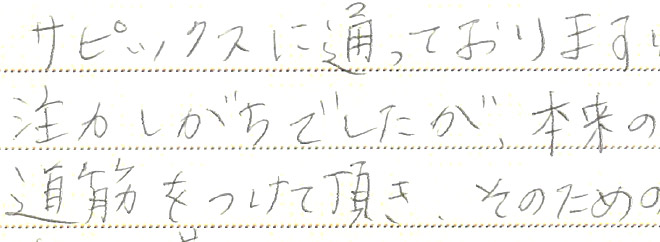 サピックスに通っております
注力しがちでしたが、本来の
道筋をつけて頂き、そのための